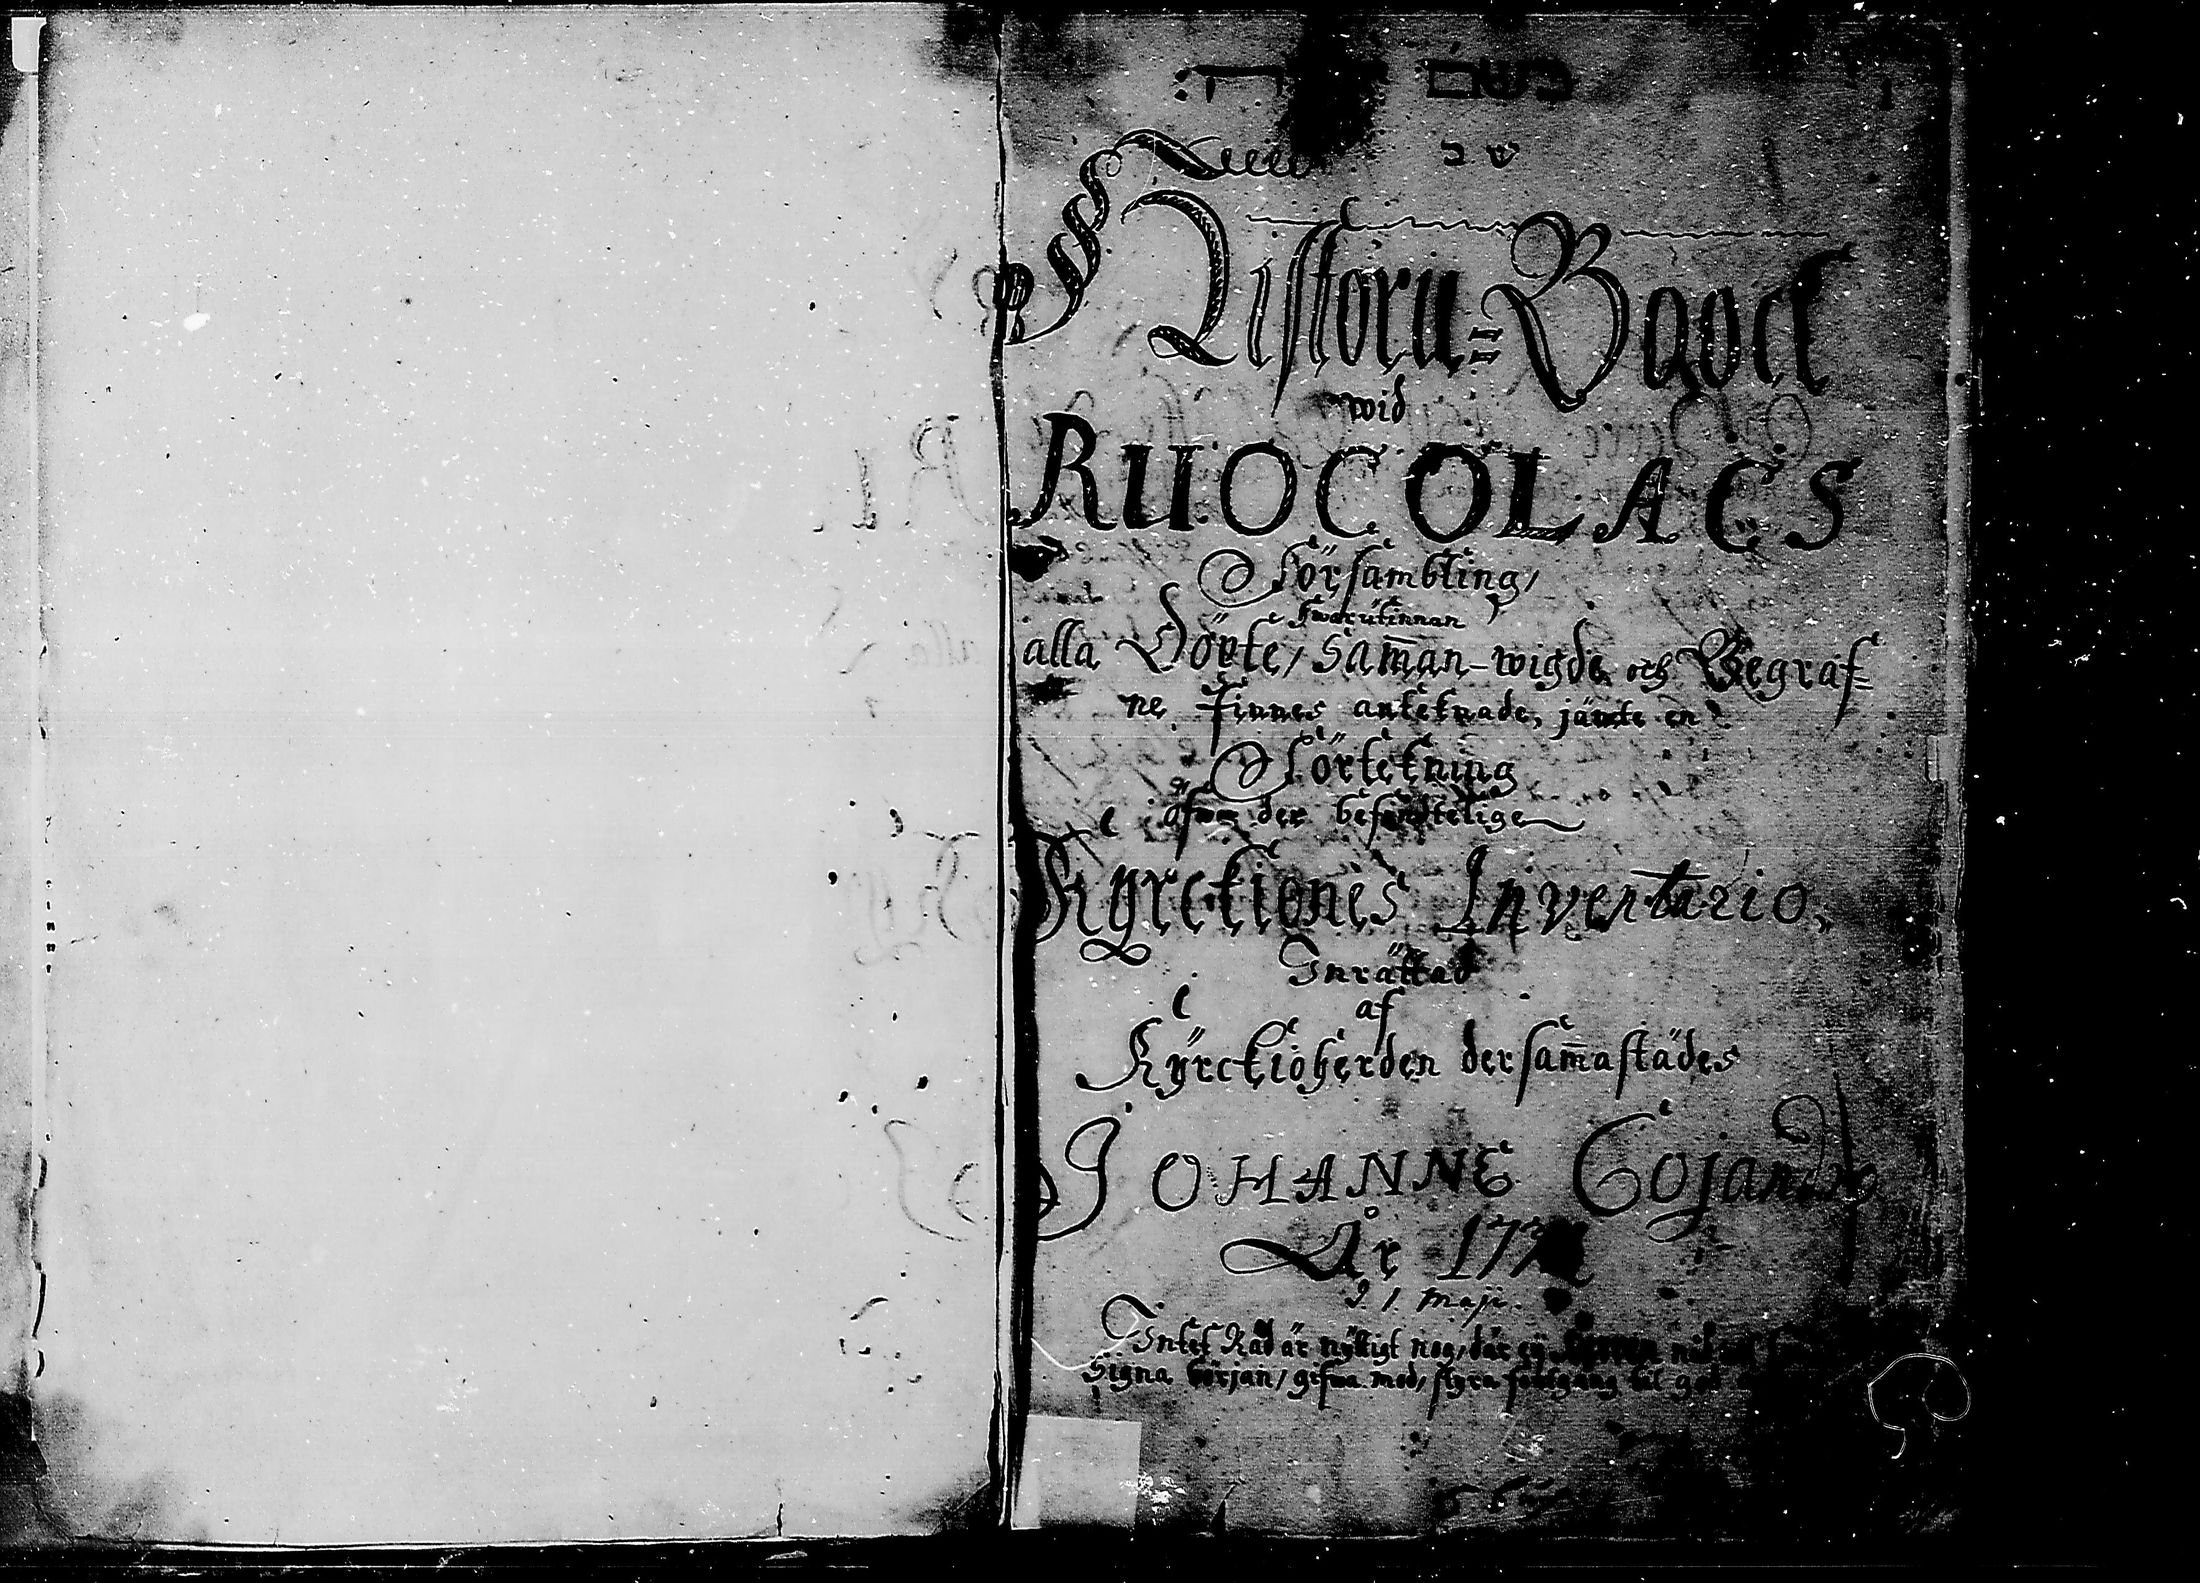 בשם
ש ב
Historu=Boock
wid
RUOCOLACS
Försambling,
hwarutinnan
alla Döpte, Sam̄an-wigde och Begraf=
ne finnes anteknade, jämte en
Förtekning
öfwer der befindtelige
Kyrckiones Inventario,
Inrättad
af
Kÿrckioherden dersam̄astädes
JOHANNE Cojandro
År 177
d. 1. Maji.
Intet Råd är nyttigt nog, där ey
Signa början, gifwa mod, styra fortgång til god